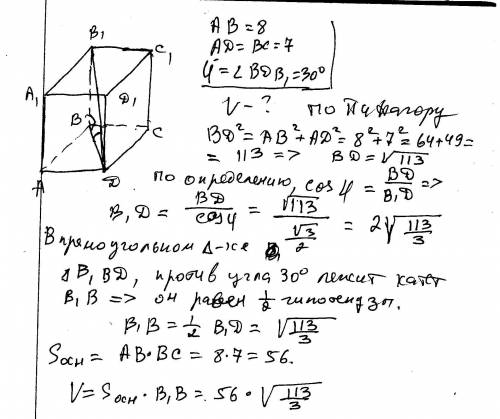 AB = 8
AD = BC = 7
φ = ∠BDB₁ = 30°
V - ?
по Пифагору
BD² = AB² + AD² = 8² + 7² = 64 + 49 =
= 113 => BD = √113
по определению, cos φ = BD/B₁D =>
B₁D = BD/cos φ = √113/(√3/2) = 2√(113/3)
В прямоугольном Δ-ке
ΔB₁BD, против угла 30° лежит катет
B₁B => он равен 1/2 гипотенузы.
B₁B = 1/2 B₁D = √(113/3)
Sосн = AB·BC = 8·7 = 56.
V = Sосн · B₁B = 56 · √(113/3)
B₁
C₁
A₁
D₁
B
C
A
D